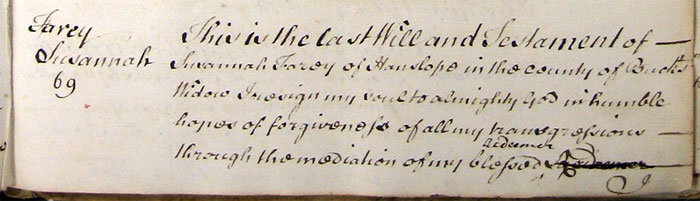 Farey
Susannah
69
This is the last Will and Testament of
Susannah Farey of Hanslope in the county of Bucks
Widow I resign my soul to almighty God in humble
hopes of forgiveness of all my transgressions
redeemer
through the mediation of my blessed Redeemer
I